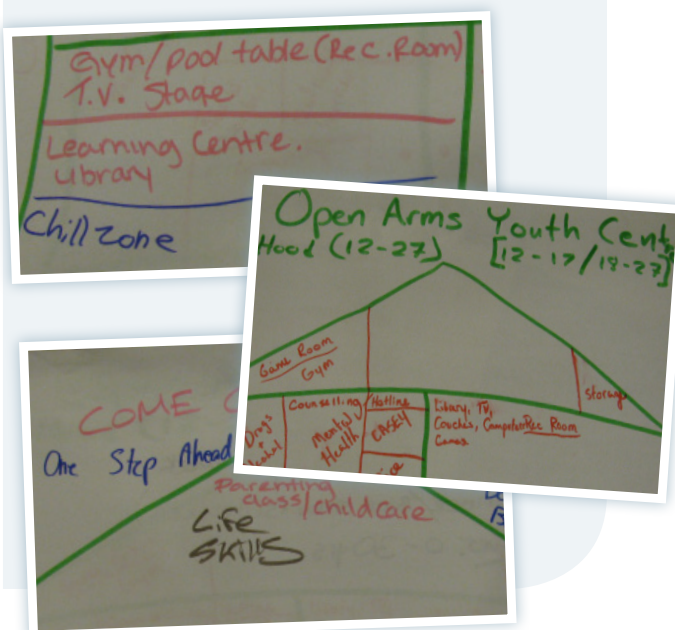 Gym/pool table (Rec. Room)
T.V. Stage
Learning Centre.
Library
Chill zone
Open Arms Youth Cent
Hood (12-27) [12-17/18-27]
Game Room
Gym
Storage
Counselling
Mental
Health
Drugs
Hotline
Library, TV,
Couches, Computer Rec Room
Games
COME
One Step Ahead
Parenting
class/childcare
Life
Skills